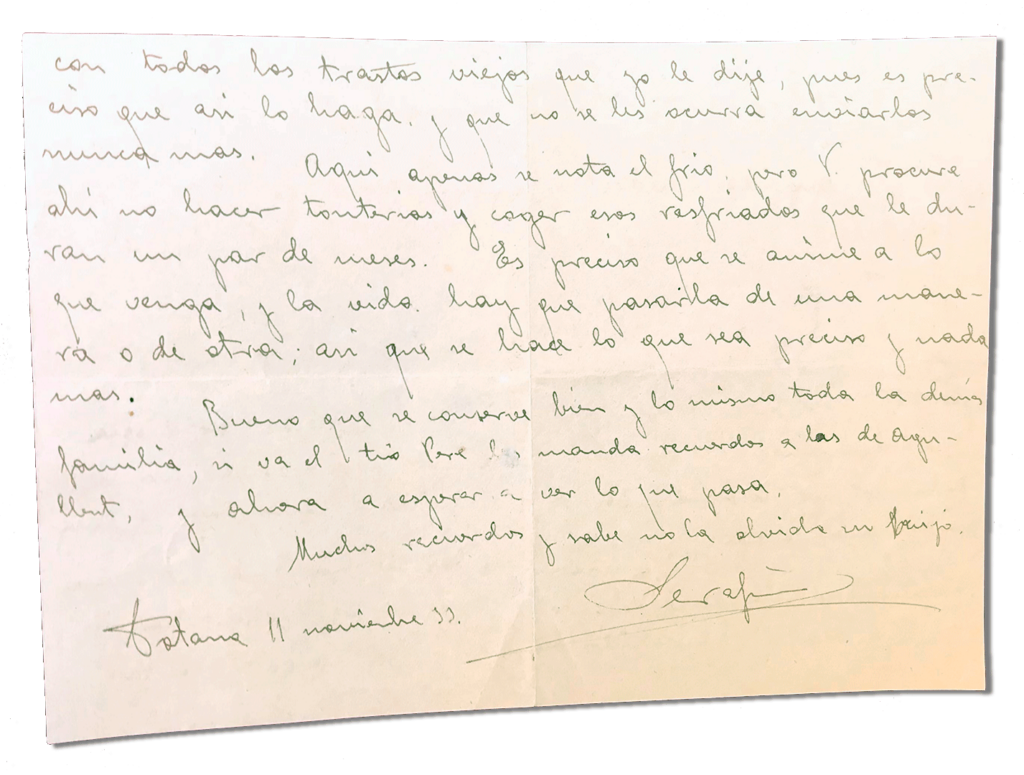 con todos los trastos viejos que yo le dije, pues es pre-
ciso que asi lo haga, y que no se les ocurra enviarlos
nunca mas.
Aqui apenas se nota el frio, pero V. procure
ahi no hacer tonterias y coger esos resfriados que le du-
ran un par de meses. Es preciso que se anime a lo
que venga, y la vida hay que pasarla de una mane-
ra o de otra; asi que se hace lo que sea preciso y nada
mas.
Bueno que se conserve bien y lo mismo toda la demás
familia, si va el tio Pere les manda recuerdos a las de Agu-
llent, y ahora a esperar a ver lo que pasa.
Muchos recuerdos y sabe no la olvida su hijo.
Serafin
Totana 11 noviembre 33.